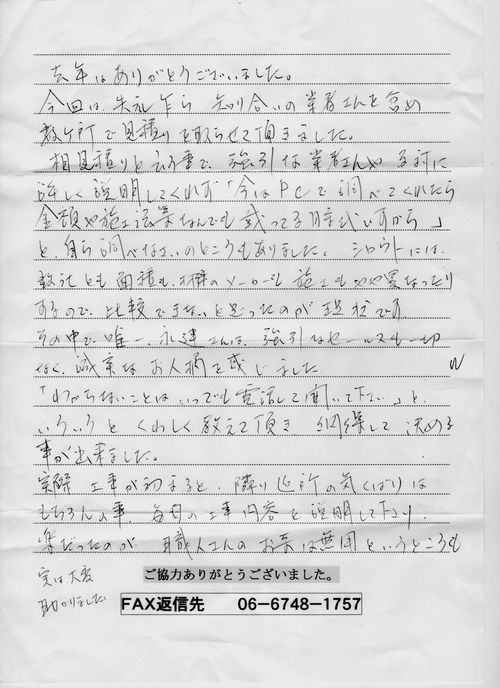 去年はありがとうございました。
今回は、失礼乍ら 知り合いの業者さんを含め
数ヶ所で見積りを取らせて頂きました。
相見積りと云う事で、強引な業者さんや 反対に
詳しく説明してくれず「今はPCで調べてくれたら
金額や施工法等なんでも載ってる時代ですから」
と、自ら調べなさいのところもありました。シロウトには、
数社とも面積も、材料のメーカーも 施工もやや異なったり
するので、比較できないと思ったのが現状です。
その中で、唯一、永建さんは、強引なセールスも一切
なく、誠実なお人柄を感じました。
「わからないことはいつでも電話して聞いて下さい」と、
いろいろと くわしく教えて頂き 納得して 決める
事が出来ました。
実際 工事が初まると、隣り近所の気くばりは
もちろんの事、毎日の工事内容を説明して下さり、
楽だったのが 職人さんの お茶は無用というところも
実は大変
助かりました
ご協力ありがとうございました。
FAX返信先 06-6748-1757